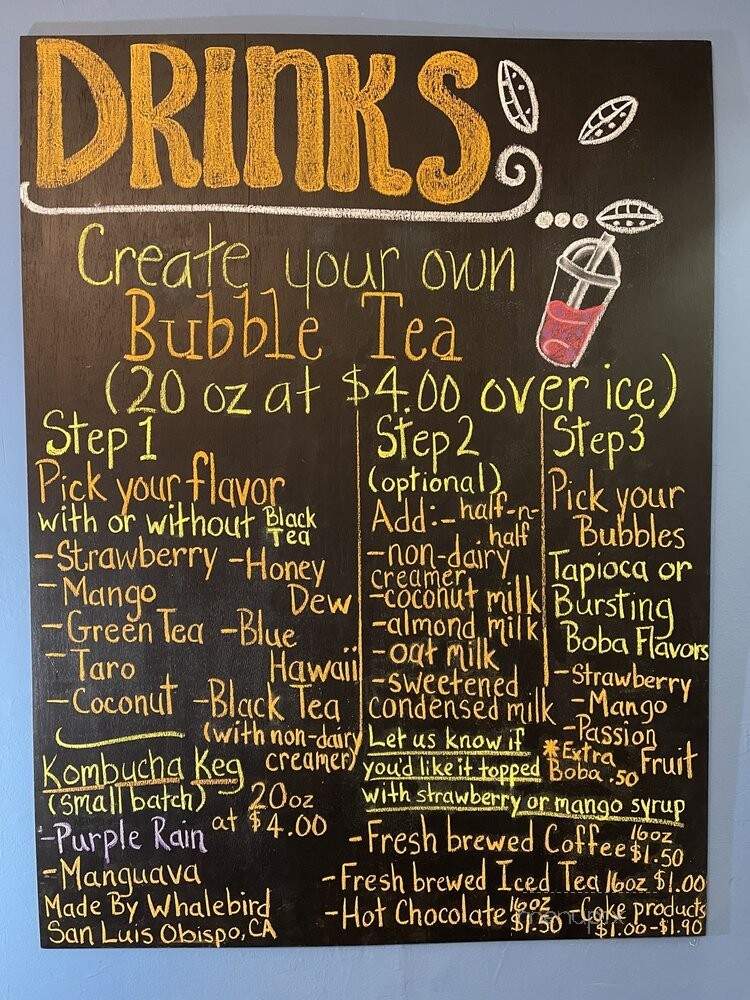 DRINKS
Create your own
Bubble Tea
(20 oz at $4.00 over ice)
Step 1
Pick your flavor
with or without Black Tea
-Strawberry
-Mango
-Green Tea
-Taro
-Coconut
-Honey Dew
-Blue Hawaii
-Black Tea
(with non-dairy creamer)
Step 2
(optional)
Add:-half-n-half
-non-dairy creamer
-coconut milk
-almond milk
-oat milk
-sweetened
condensed milk
Let us know if
you'd like it topped
with strawberry or mango syrup
Step 3
Pick your
Bubbles
Tapioca or
Bursting
Boba Flavors
-Strawberry
-Mango
-Passion Fruit
*Extra Boba .50
Kombucha Keg
(small batch) 20oz at $4.00
-Purple Rain
-Manguava
Made By Whalebird
San Luis Obispo, CA
-Fresh brewed Coffee 16oz $1.50
-Fresh brewed Iced Tea 16oz $1.00
-Hot Chocolate 16oz $1.50
-Cake products $1.00-$1.90
menupix